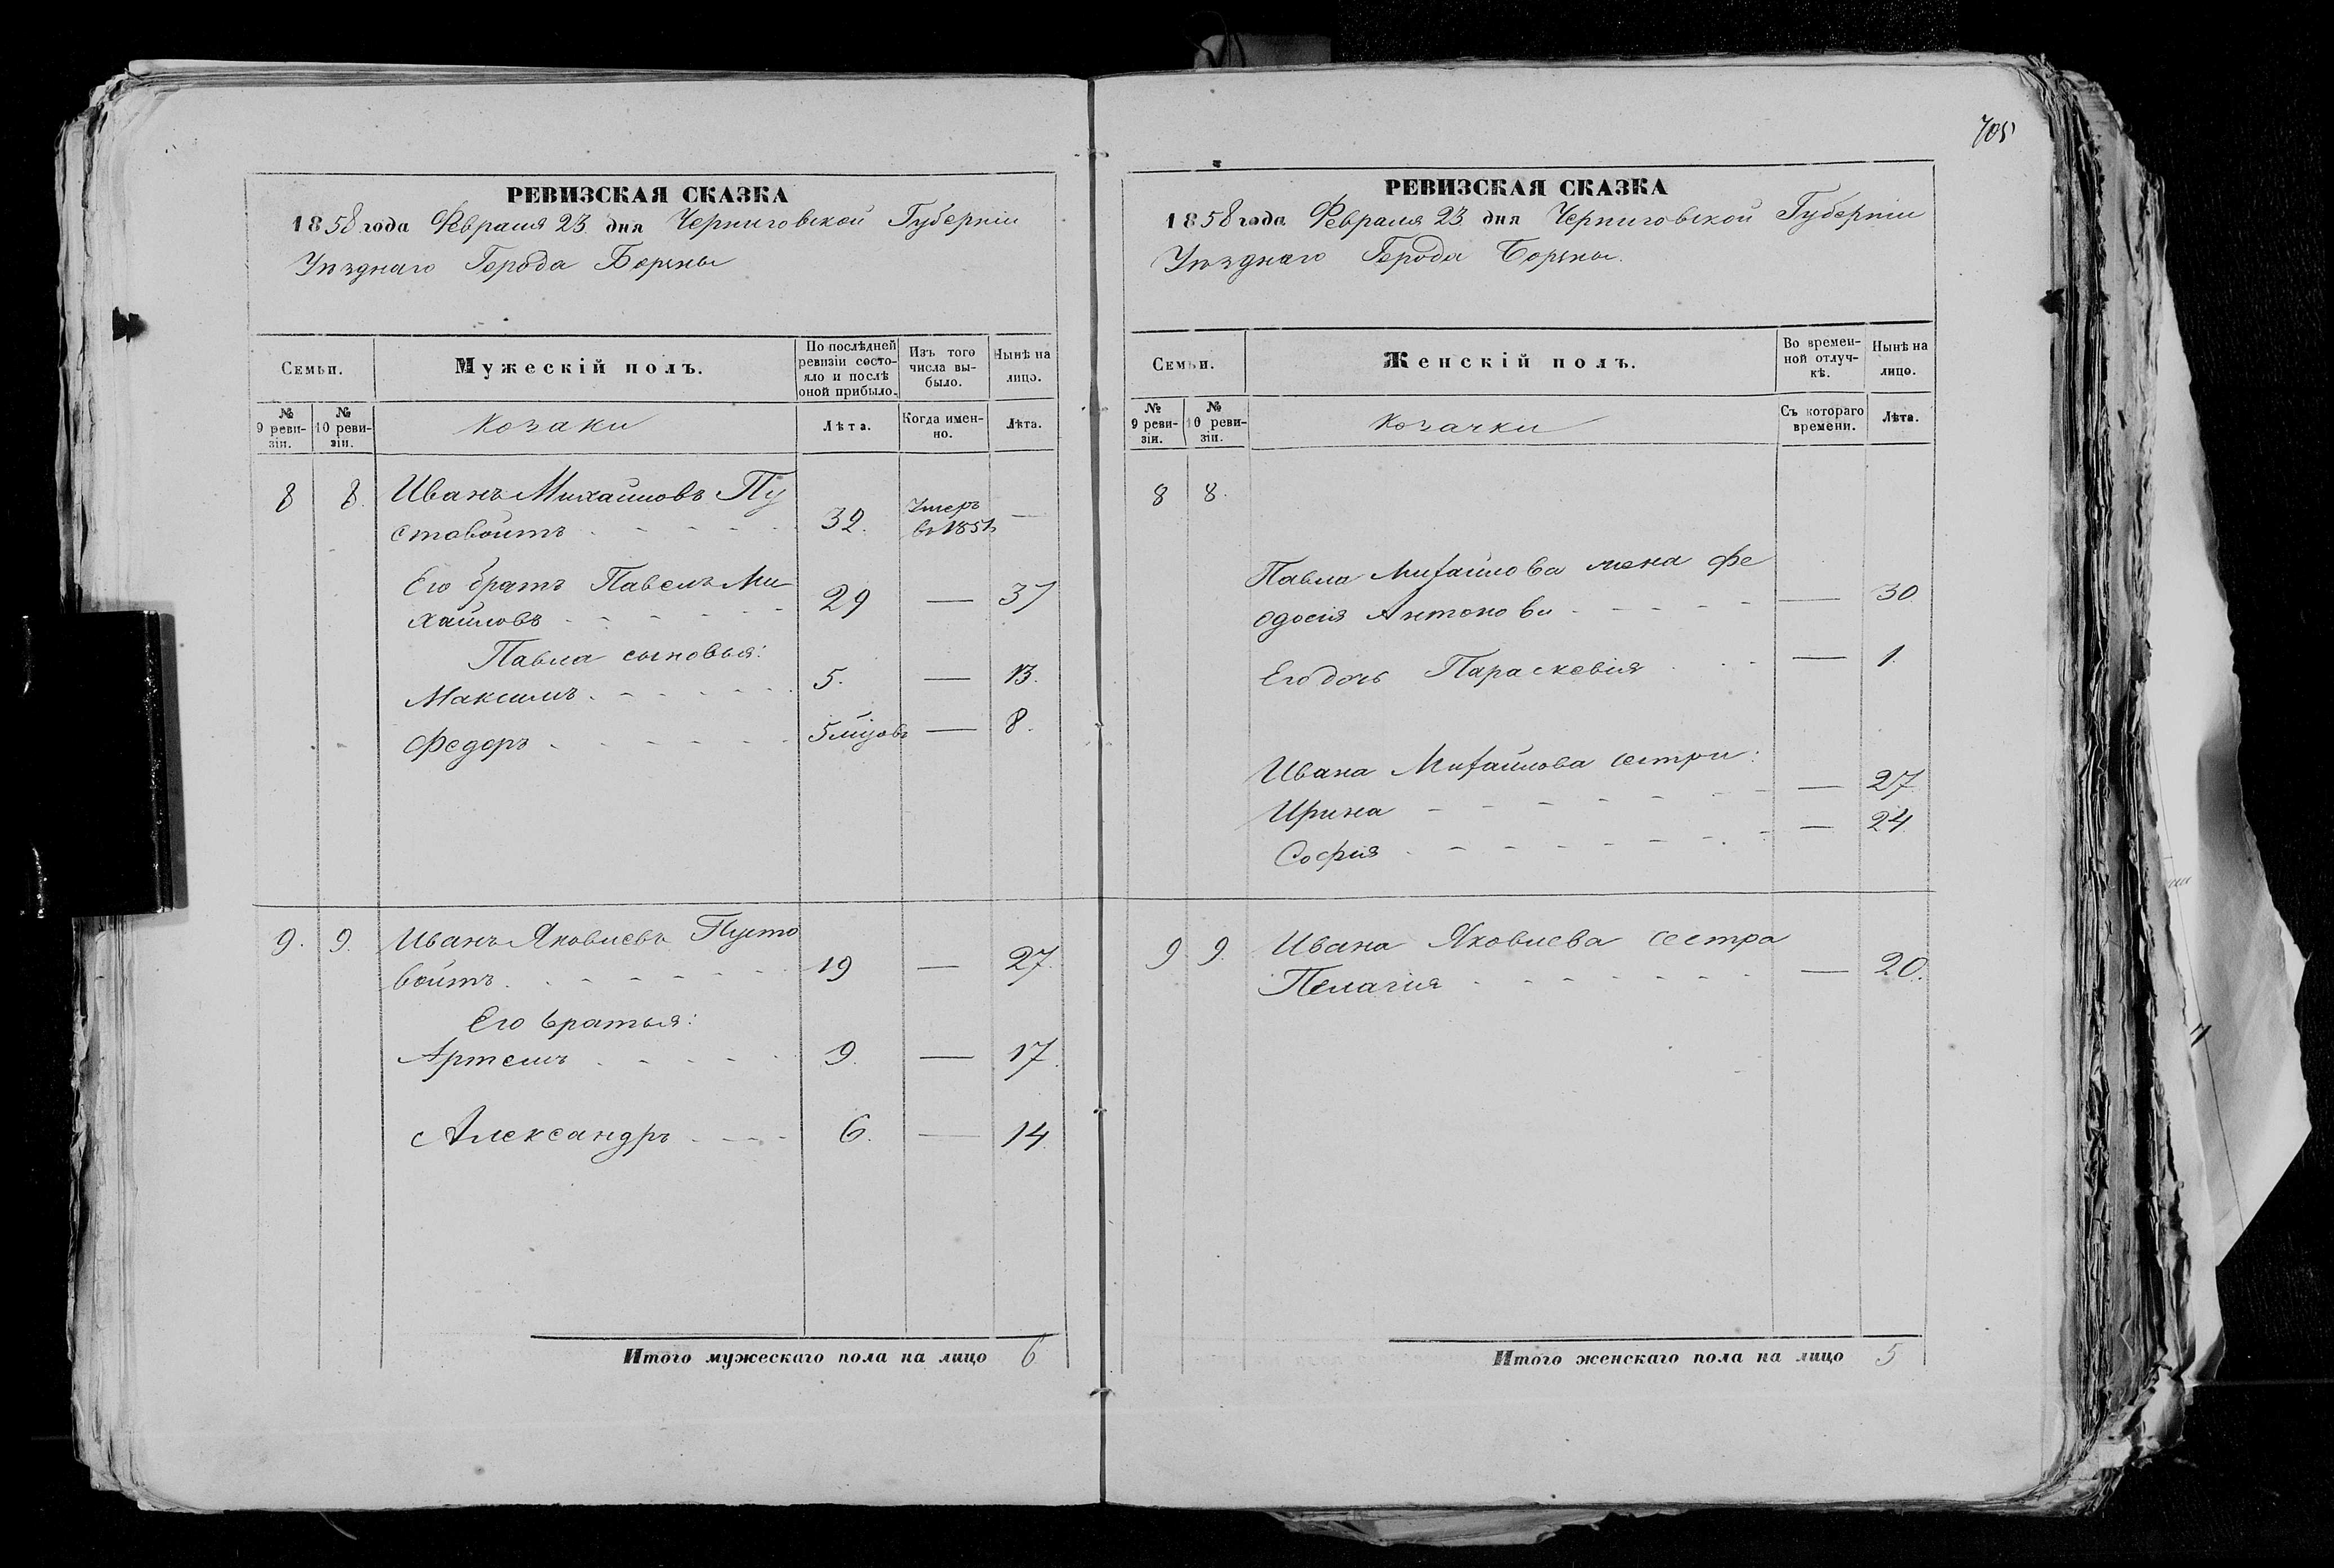 705
РЕВИЗСКАЯ СКАЗКА
1858 года Февраля 23 дня Черниговской Губерніи
Уѣзднаго Города Борзны
Семьи.
Мужескій полъ.
По послѣдней ревизіи состояло и послѣ оной прибыло.
Изъ того числа выбыло.
Нынѣ на лицо.
№ 9 ревизіи.
№ 10 ревизіи.
Козаки
Лѣта.
Когда именно.
Лѣта.
8 8. Иванъ Михайловъ Пу
стовойтъ 32. Умеръ въ 1851 —
Его братъ Павелъ Ми
хайловъ 29 — 37
Павла сыновья:
Максимъ 5. — 13.
Федоръ 5 мцовъ — 8.
9. 9. Иванъ Яковлевъ Пусто
войтъ 19 — 27.
Его братья:
Артемъ 9. — 17.
Александръ 6. — 14
Итого мужескаго пола на лицо 6
РЕВИЗСКАЯ СКАЗКА
1858 года Февраля 23 дня Черниговской Губерніи
Уѣзднаго Города Борзны.
Семьи.
Женскій полъ.
Во временной отлучкѣ.
Нынѣ на лицо.
№ 9 ревизіи.
№ 10 ревизіи.
Козачки
Съ котораго времени.
Лѣта.
8 8.
Павла Михайлова жена Фе
одосія Антонова — 30
Его дочь Параскевія — 1.
Ивана Михайлова сестри:
Ирина — 27
София — 24
9 9. Ивана Яковлева сестра
Пелагия — 20.
Итого женскаго пола на лицо 5